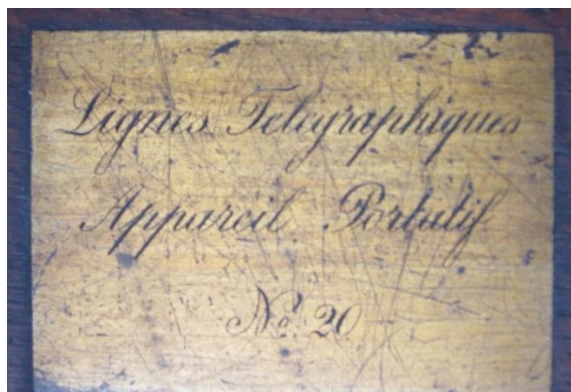 Lignes Telegraphiques
Appareil Portatif
Nº 20